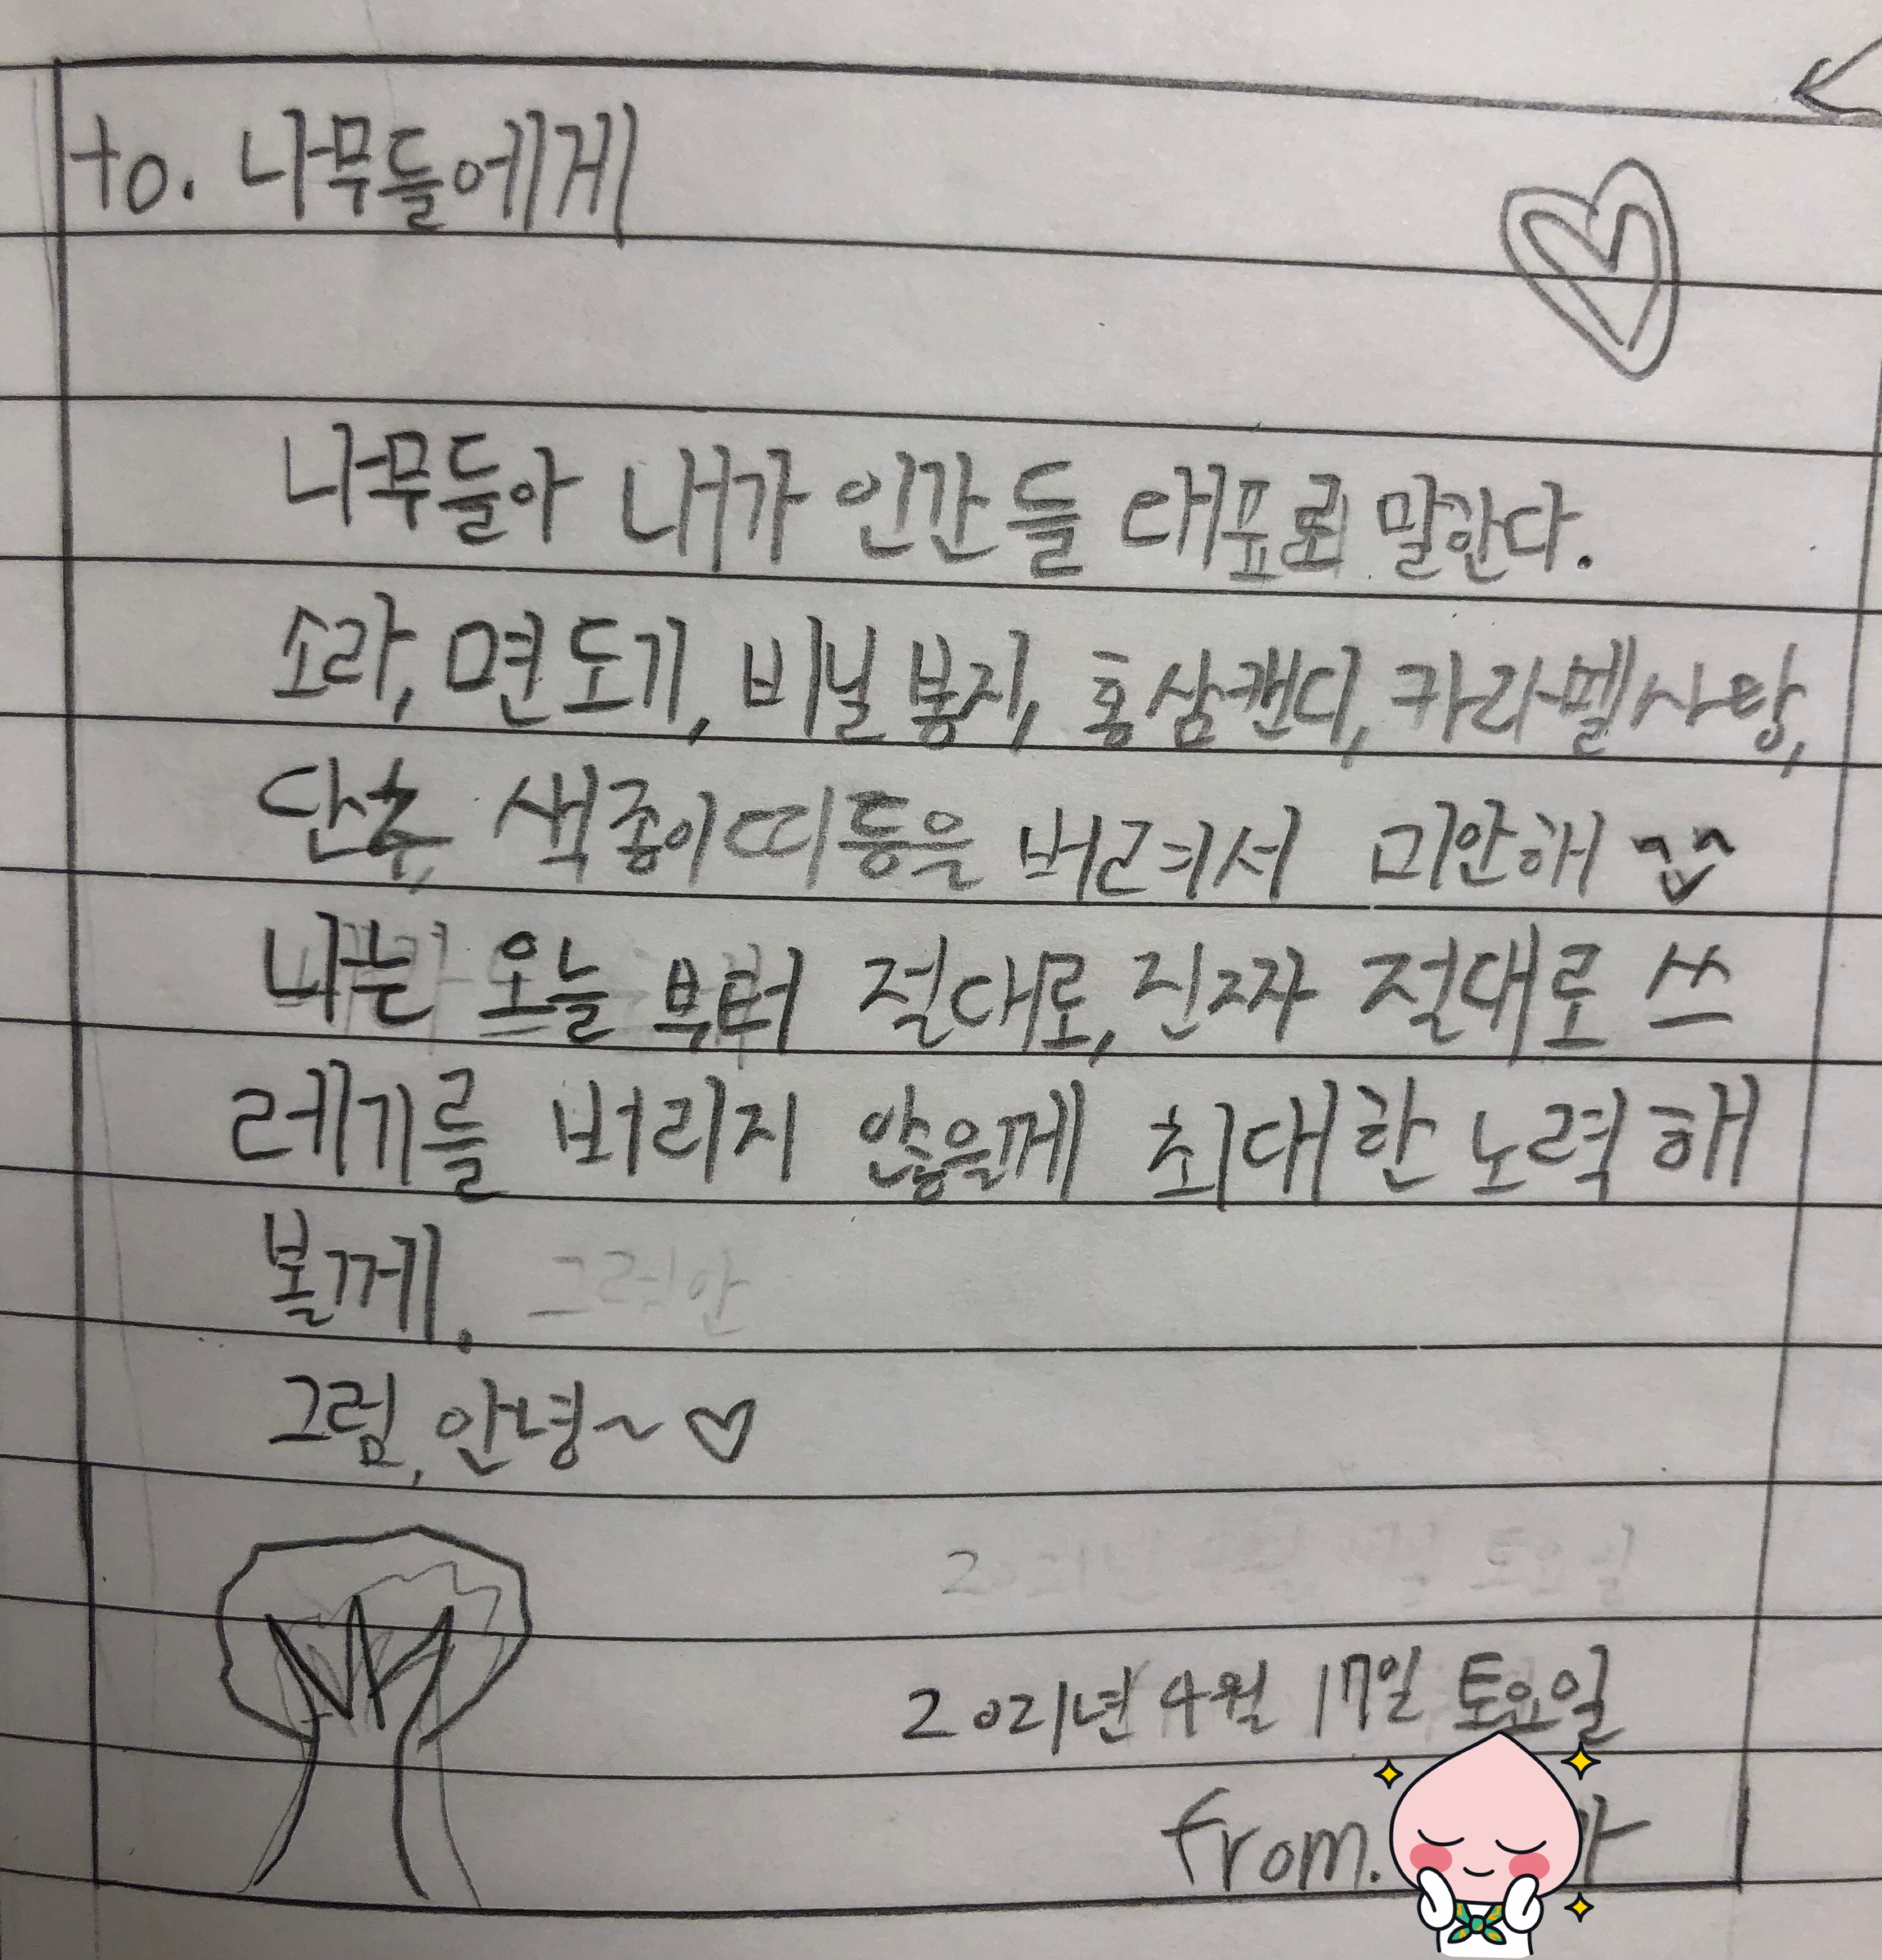 to. 나무들에게
나무들아 내가 인간들 대표로 말한다.
소라, 면도기, 비닐봉지, 홍삼캔디, 카라멜사탕,
단추, 색종이띠등을 버려서 미안해
나는 오늘 부터 절대로, 진짜 절대로 쓰
레기를 버리지 않을께 최대한 노력해
볼께.
그럼, 안녕~♡
2021년 4월 17일 토요일
from.